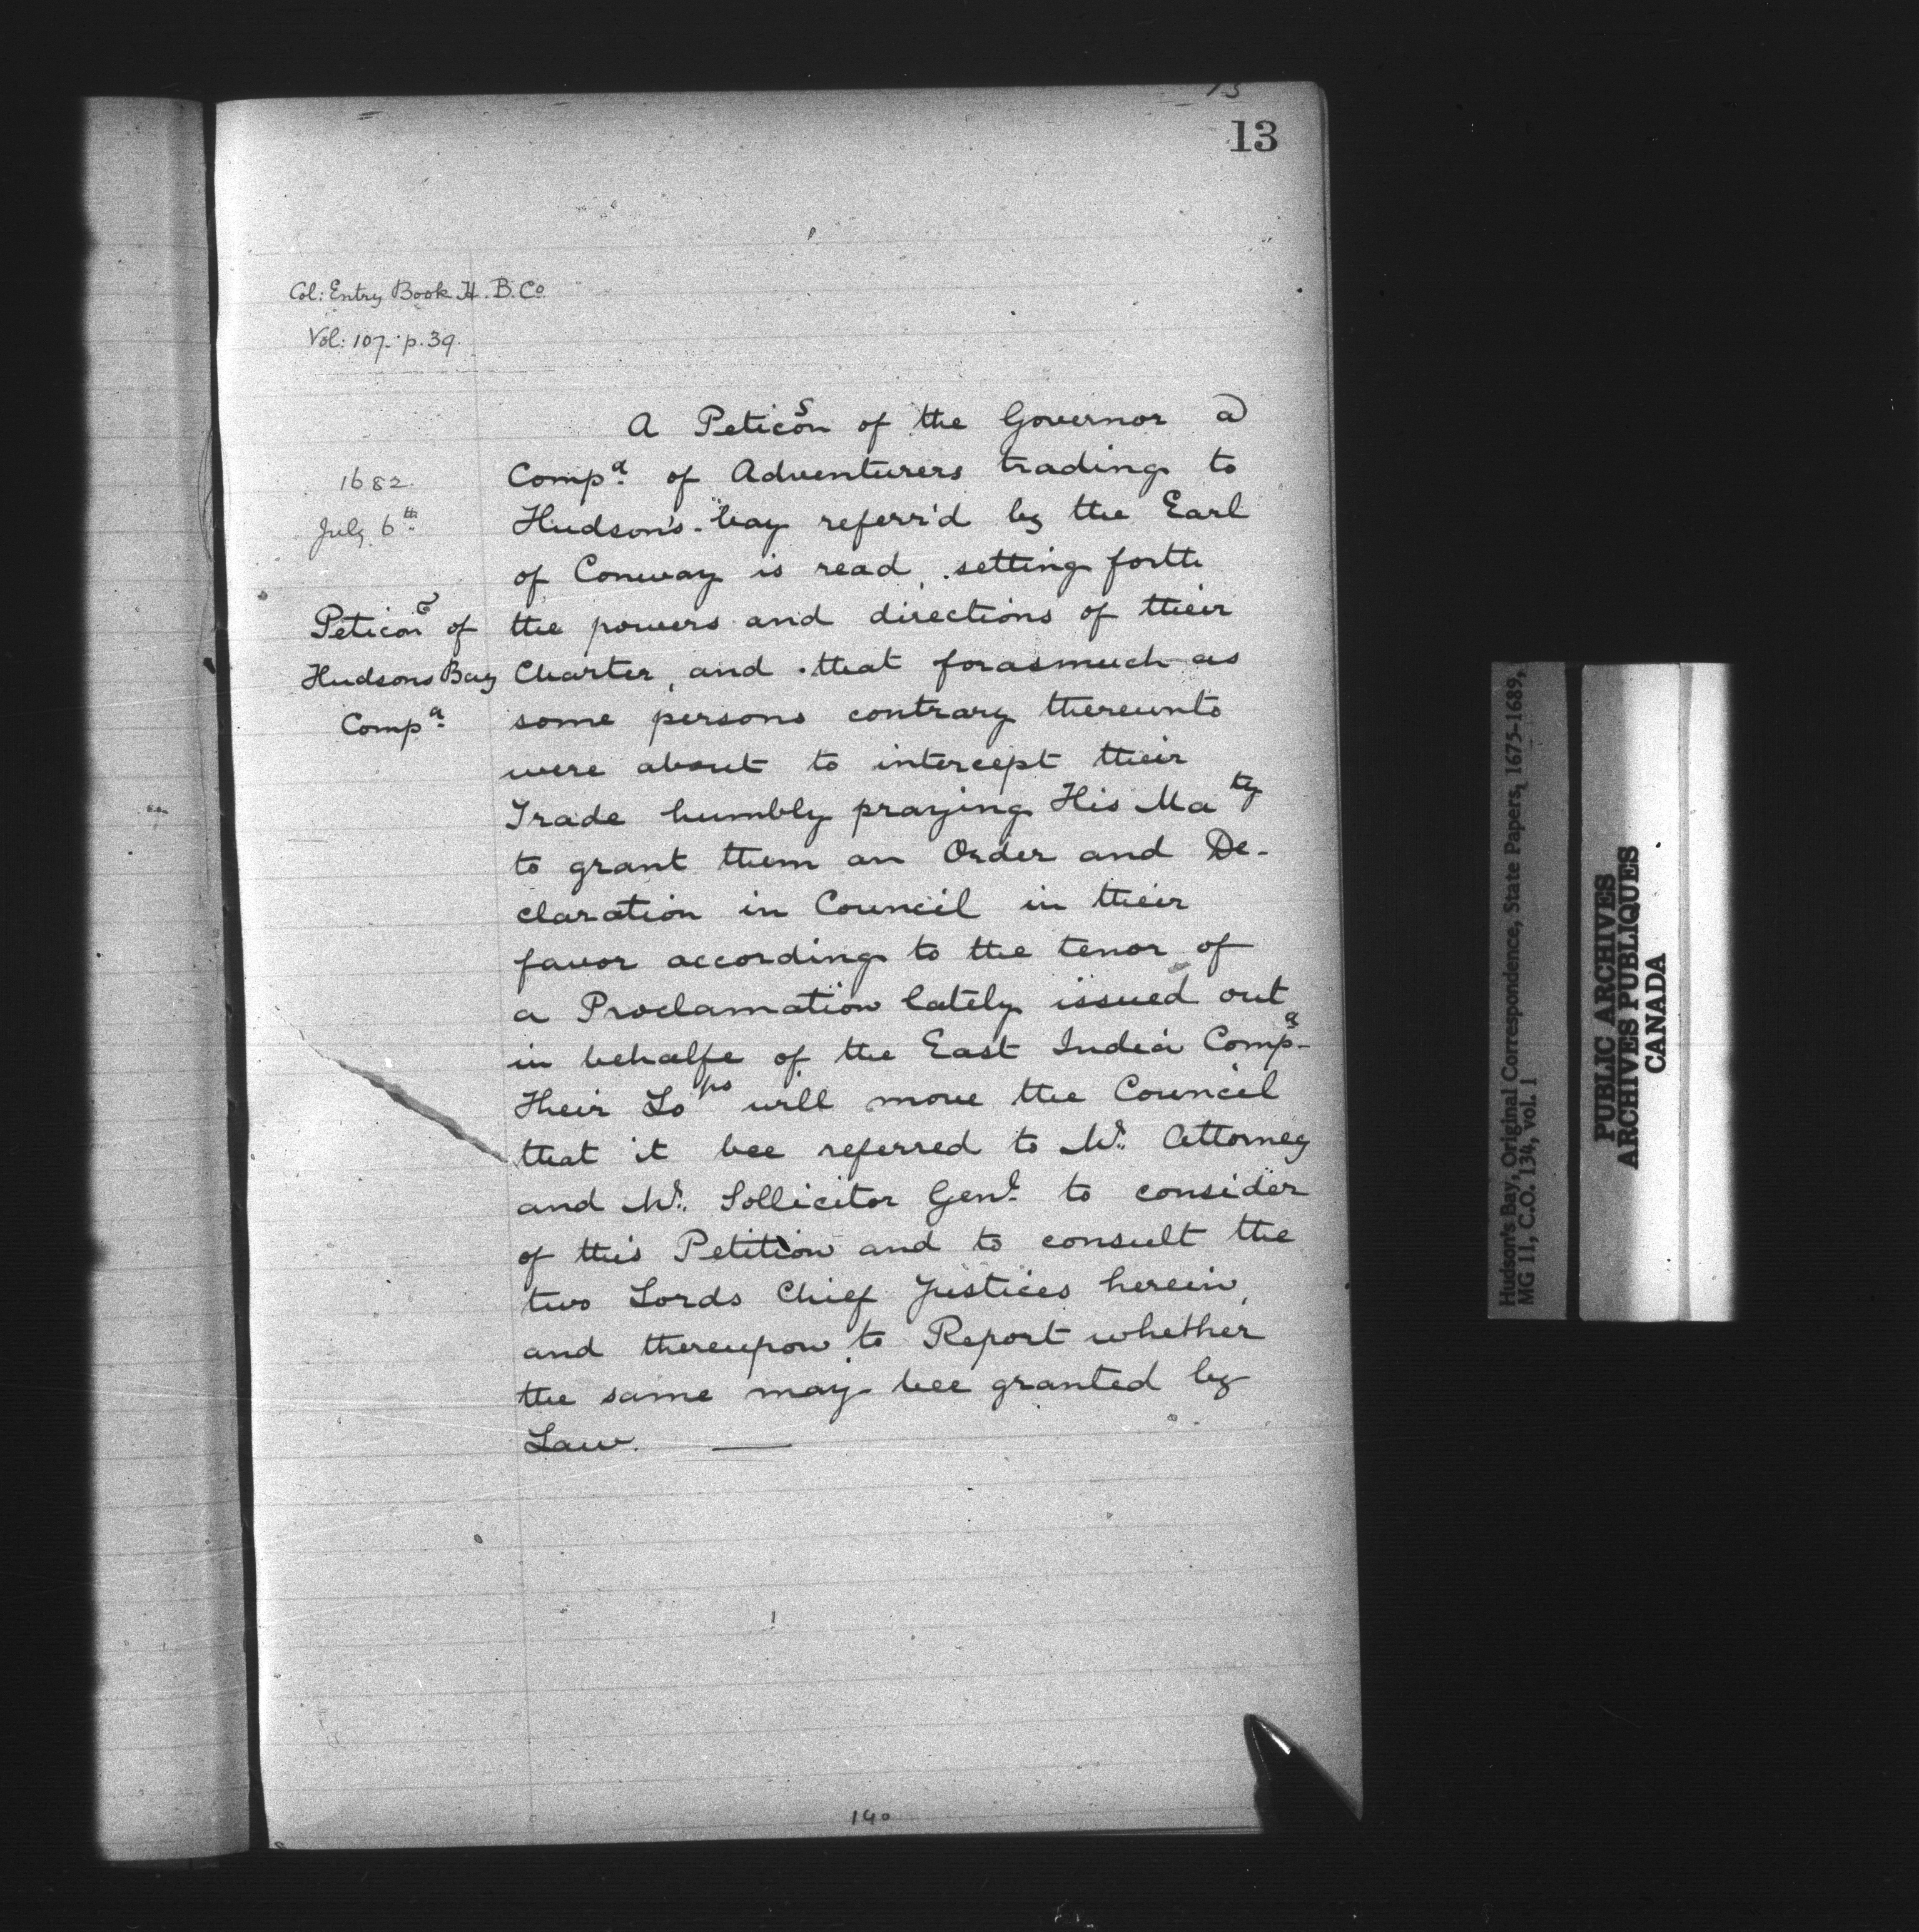 13
Col: Entry Book H. B. Co
Vol: 107. p. 39.
1682.
July 6th
Peticon of
Hudsons Bay
Compa
A Peticon of the Governor &
Compa of Adventurers trading to
Hudson's-bay referr'd by the Earl
of Conway is read, setting forth
the powers and directions of their
Charter, and that forasmuch as
some persons contrary thereunto
were about to intercept their
Trade humbly praying His Maty
to grant them an Order and De-
claration in Council in their
favor according to the tenor of
a Proclamation lately issued out
in behalfe of the East India Compa
Their Lops will move the Council
that it bee referred to Mr. Attorney
and Mr. Sollicitor Genl. to consider
of this Petition and to consult the
two Lords Chief Justices herein,
and thereupon to Report whether
the same may bee granted by
Law.
140
Hudson's Bay, Original Correspondence, State Papers, 1675-1689,
MG 11, C.O. 134, vol. 1
PUBLIC ARCHIVES
ARCHIVES PUBLIQUES
CANADA